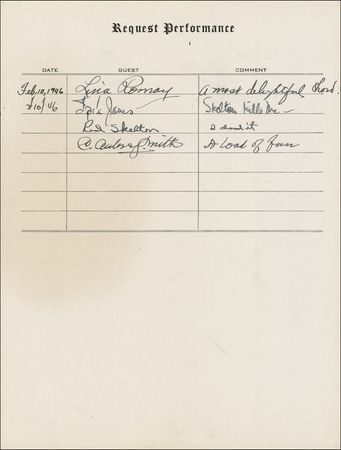 Request Performance
DATE GUEST COMMENT
Feb. 10, 1946 Lina Romay A most delightful
2/10/46 James Skelton Kills Me—
Red Skelton I dood it
C. Aubrey Smith A load of fun